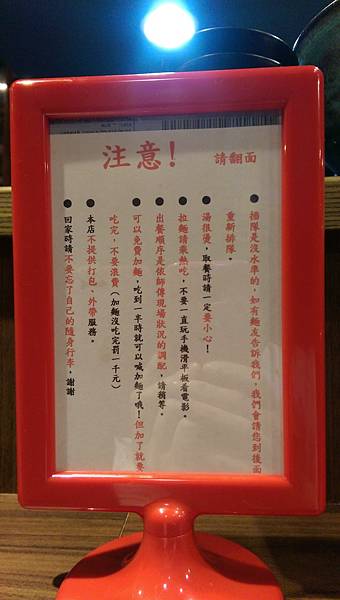 注意!
請翻面
●插隊是沒水準的,如有麵友告訴我們,我們會請您到後面
重新排隊。
●湯很燙,取餐時請一定要小心!
●拉麵請乘熱吃,不要一直玩手機滑平板看電影。
●出餐順序是依師傅現場狀況的調配,請稍等。
●可以免費加麵,吃到一半時就可以喊加麵了哦!但加了就要
吃完,不要浪費(加麵沒吃完罰一千元)
●本店不提供打包、外帶服務。
●回家時請不要忘了自己的隨身行李,謝謝